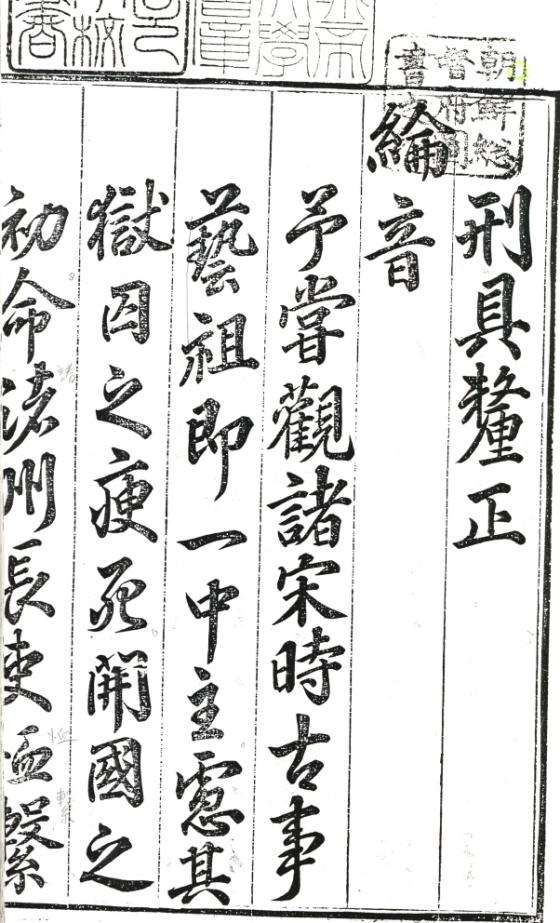 朝鮮總
督府圖
書
刑具釐正
綸音
予嘗觀諸宋時古事
藝祖即一中主慮其
獄囚之瘐死開國之
初命諸州長吏恤繫